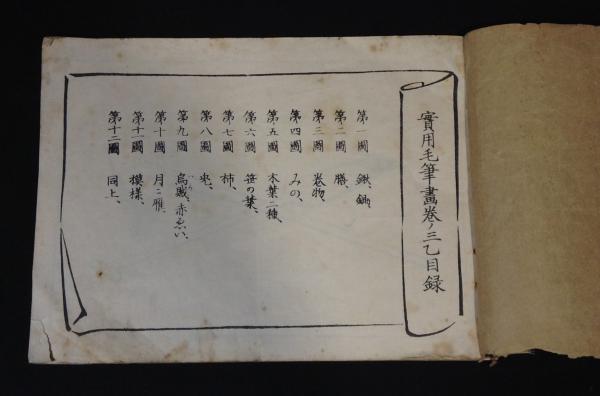 實用毛筆畫卷ノ三乙目録
第一圖 鍬、鋤、
第二圖 膳、
第三圖 卷物、
第四圖 みの、
第五圖 木葉二種、
第六圖 笹の葉、
第七圖 柿、
第八圖
第九圖 烏賊、赤ゑい、
第十圖 月ニ雁、
第十一圖 模様、
第十二圖 同上、